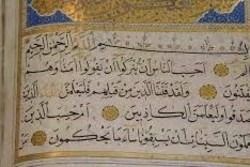 بسم الله الرحمن الرحيم
الم احسب الناس ان يتركوا ان يقولوا امنا وهم
لا يفتنون ولقد فتنا الذين من قبلهم فليعلمن الله
الذين صدقوا وليعلمن الكاذبين ام حسب الذين
يعملون السيئات ان يسبقونا ساء ما يحكمون